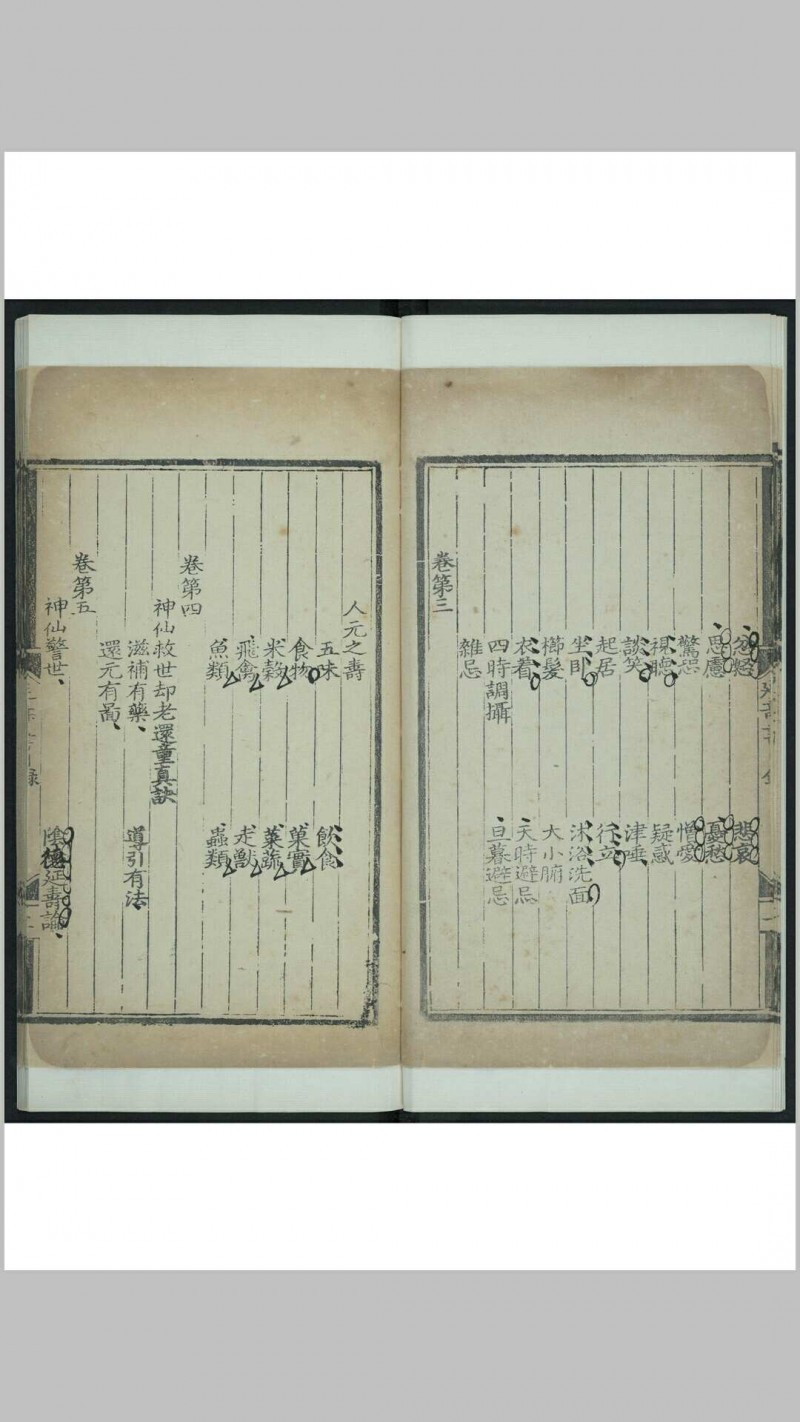 忿怒 悲哀
思慮 憂愁
驚恐 憎愛
視聽 疑惑
談笑 津唾
起居 行立
坐臥 沐浴洗面
櫛髮 大小腑
衣着 天時避忌
四時調攝 旦暮避忌
雜忌
卷第三
人元之壽
五味 飲食
食物 菓實
米穀 菜蔬
飛禽 走獸
魚類 蟲類
卷第四
神仙救世却老還童真訣
滋補有藥 導引有法
還元有啚
卷第五
神仙警世 陰德延壽論